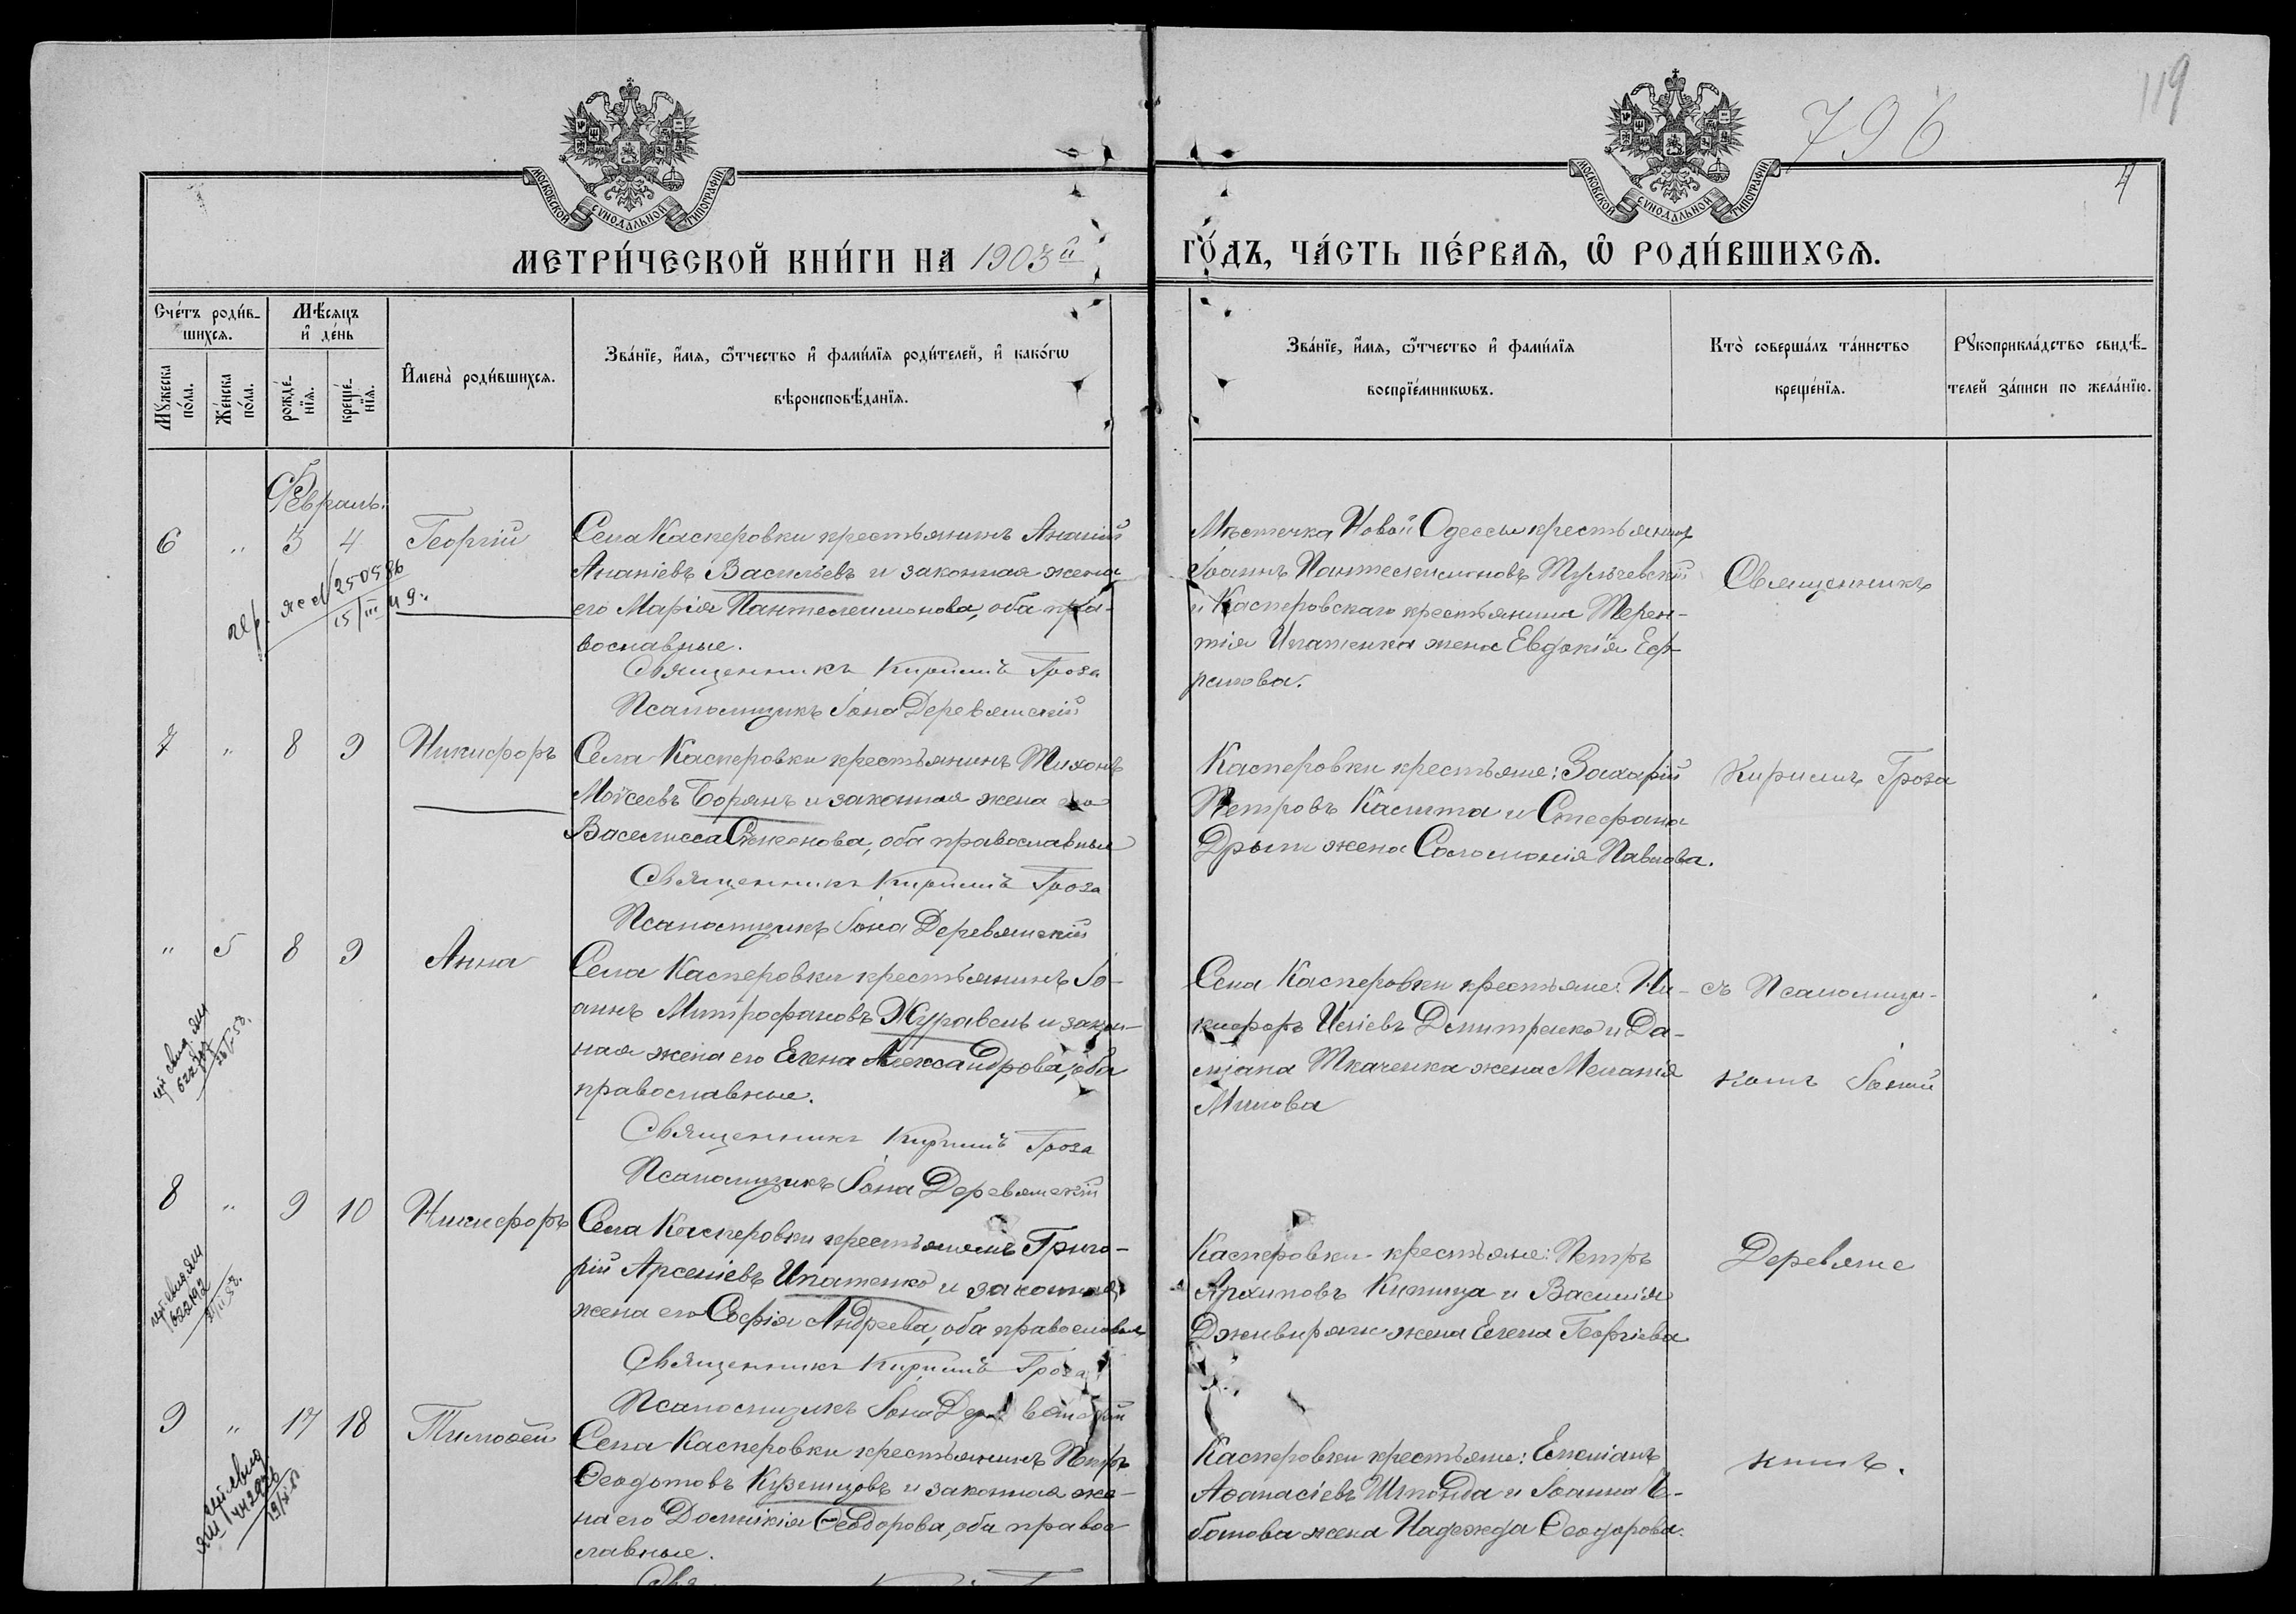 119
796
4
МОСКОВСКОЙ СѴНОДАЛЬНОЙ ТИПОГРАФІИ
МОСКОВСКОЙ СѴНОДАЛЬНОЙ ТИПОГРАФІИ
МЕТРИ́ЧЕСКОЙ КНИ́ГИ НА 1903й ГО́ДЪ, ЧА́СТЬ ПЕ́РВАѦ, Ѡ҆ РОДИ́ВШИХСѦ.
Сче́тъ роди́в-
шихсѧ.
Мꙋ́жеска по́ла.
Же́нска по́ла.
Мѣ́сѧцъ
и҆ де́нь
рожде́-
нїѧ.
креще́-
нїѧ.
И҆мена̀ роди́вшихсѧ.
Зва́нїе, и҆́мѧ, ѻ҆́тчество и҆ фами́лїѧ роди́телей, и҆ како́гѡ
вѣроисповѣ́данїѧ.
Зва́нїе, и҆́мѧ, ѻ҆́тчество и҆ фами́лїѧ
воспрїе́мникѡвъ.
Кто̀ соверша́лъ та́инство
креще́нїѧ.
Рꙋкоприкла́дство свидѣ́-
телей за́писи по жела́нїю.
Февраль.
6 " 3 4 Георгій
Села Касперовки крестьянинъ Ананій
Ананіевъ Васильевъ и законная жена
его Марія Пантелеимонова, оба пра-
вославные.
Священникъ Кириллъ Гроза
Псаломщикъ Іона Деревянскій
Мѣстечка Новой Одессы крестьянинъ
Іоаннъ Пантелеимоновъ Тульчевскій
и Касперовскаго крестьянина Терен-
тія Ипатенка жена Евдокія Еф-
ремова.
Священникъ
250586
15/III 49.
7 " 8 9 Никифоръ
Села Касперовки крестьянинъ Тихонъ
Моѵсеевъ Борянъ и законная жена его
Василисса Симеонова, оба православные
Священникъ Кириллъ Гроза
Псаломщикъ Іона Деревянскій
Касперовки крестьяне: Захарій
Петровъ Касита и Стефана
Дрыги жена Соломонія Павлова.
Кириллъ Гроза
" 5 8 9 Анна
Села Касперовки крестьянинъ Іо-
аннъ Митрофановъ Журавель и закон-
ная жена его Елена Александрова, оба
православные.
Священникъ Кириллъ Гроза
Псаломщикъ Іона Деревянскій
Села Касперовки крестьяне: Ни-
кифоръ Иліевъ Дмитренко и Да-
міана Ткаченка жена Меланія
Милова
съ Псаломщи-
комъ Іоной
8 " 9 10 Никифоръ
Села Касперовки крестьянинъ Григо-
рій Арсеніевъ Ипатенко и законная
жена его Софія Андреева, оба православные
Священникъ Кириллъ Гроза
Псаломщикъ Іона Деревянскій
Касперовки крестьяне: Петръ
Архиповъ Кипица и Василія
Дживиряги жена Елена Георгіева
Деревянс
9 " 17 18 Тимоѳей
Села Касперовки крестьянинъ Петръ
Ѳеодотовъ Кузнецовъ и законная же-
на его Домникія Ѳеодорова, оба правос-
лавные.
Касперовки крестьяне: Емеліанъ
Аѳанасіевъ Шпонда и Іоанна
жена Надежда Ѳеодорова.
кимъ.